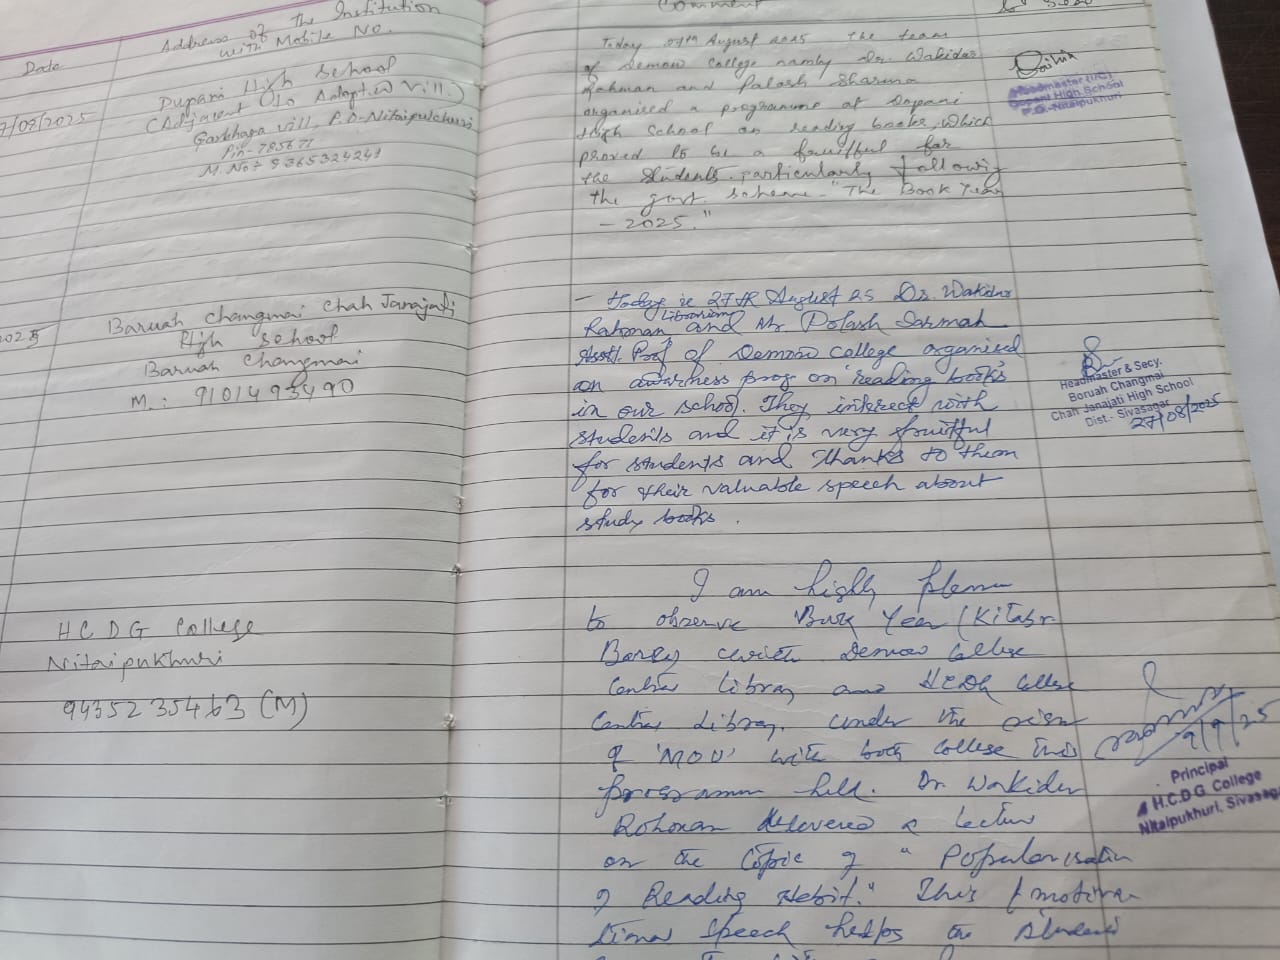 Date
Address of the Institution
with Mobile No.
Comment
7/08/2025
Dupani High School
(Adjacent to Adoptive Vill.)
Garbhaga Vill, P.O-Nitaipukhuri
Pin-785671
M. No: 9365324241
Today 07th August 2025 the team
of Demow College namly Dr. Wakidur
Rahman and Palash Sharma
organised a programme at Dopani
High School on reading books, which
proved to be a fruitful for
the students particularly following
the govt. scheme - "The Book Year
- 2025."
Headmaster (I/C)
Dopani High School
P.O.-Nitaipukhuri
2025
Baruah Changmai Chah Janajati
High School
Baruah Changmai
M.: 9101493490
- Today is 27th August 25 Dr. Wakidur
Librarian
Rahman, and Mr Polash Sarmah
Asstt. Prof of Demow College organised
an awarness prog on 'reading books'
in our school. They interect with
students and it is very fruitful
for students and thanks to them
for their valuable speech about
study books.
Headmaster & Secy.
Boruah Changmai
Chah Janajati High School
Dist.- Sivasagar
27/08/2025
HCDG College
Nitaipukhuri
9435235463 (M)
I am highly
to observe Year (Kitab
with Demow College
Central Library and HCDG College
Central Library. under the
of 'MOU' with both College this
programm held. Dr. Wakidur
Rohman delivered a lecture
on the topic of "Popularisation
of Reading Habit." This motiva
tional speech helps the students
9/9/25
Principal
H.C.D.G. College
Nitaipukhuri, Sivasagar